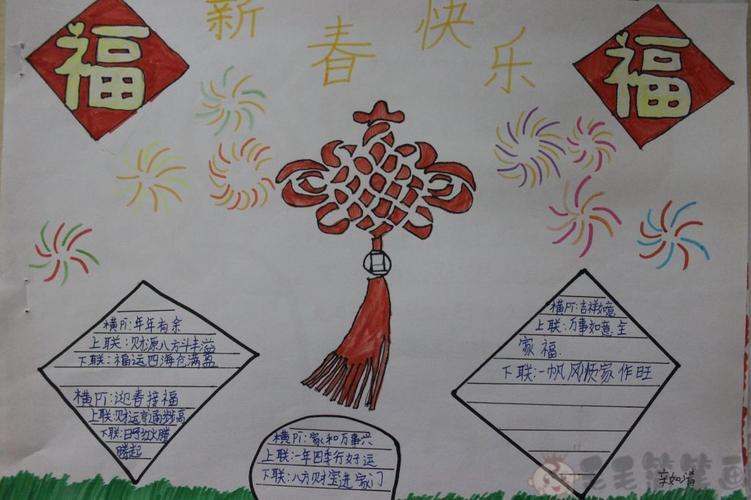 福
新春快乐
福
横Pi:年年有余
上联:财源八方斗丰溢
下联:福运四海仓满盈
横Pi:迎春接福
上联:财运亨通步步高
下联:日子红火腾
腾起
横Pi:家和万事兴
上联:一年四季行好运
下联:八方财宝进家门
横Pi:吉祥如意
上联:万事如意全
家福.
下联:一帆风顺家作旺
毛毛简笔画